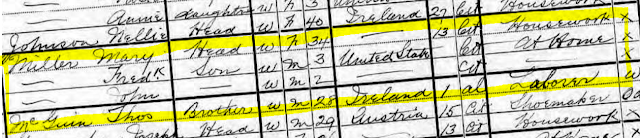 — Annie daughter W F 3 Housework
Johnson Nellie Head W F 40 Ireland 27 Cit Housework
Miller Mary Head W F 34 — 13 Cit Housework X
— Fredk Son W M 3 United States Cit At Home X
— John — W M 2 — Cit — X
McGuin Thos Brother W M 28 Ireland 1 al Laborer W
— Joseph Head W M 29 Austria 15 Cit Shoemaker
13 Cit Housework